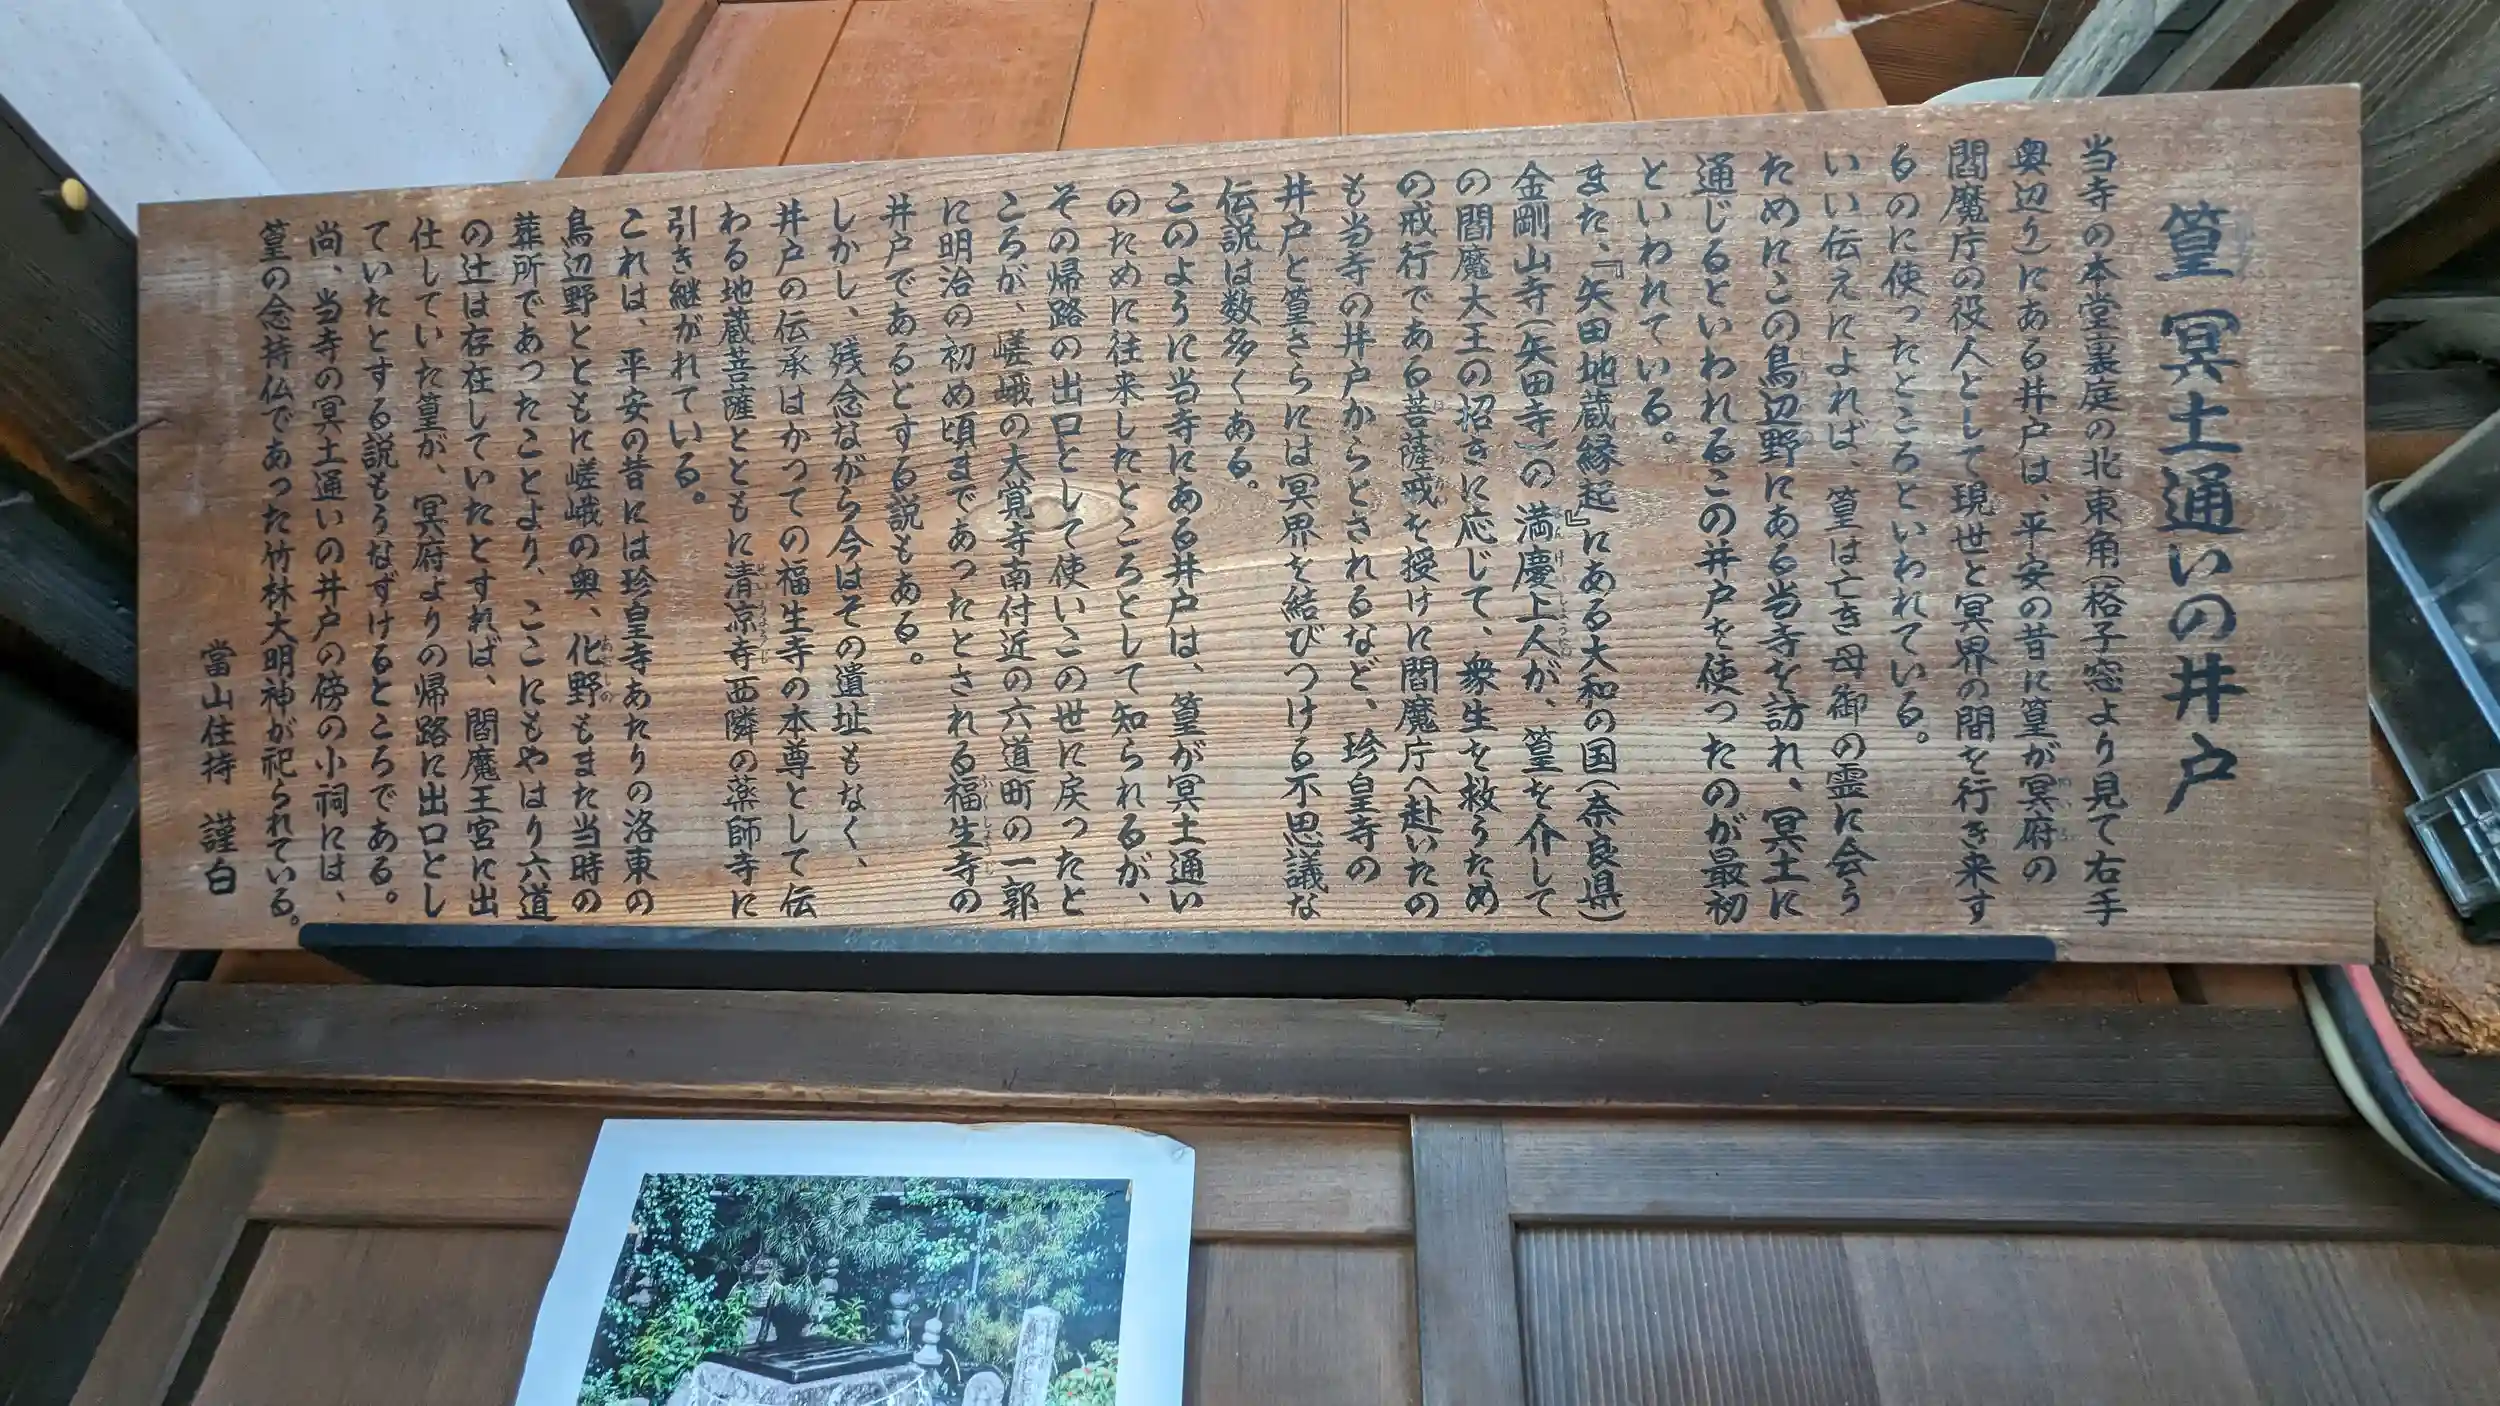 篁 冥土通いの井戸
当寺の本堂裏庭の北東角(格子窓より見て右手
奥辺り)にある井戸は、平安の昔に篁が冥府の
閻魔庁の役人として現世と冥界の間を行き来す
るのに使ったところといわれている。
いい伝えによれば、篁は亡き母御の霊に会う
ためにこの鳥辺野にある当寺を訪れ、冥土に
通じるといわれるこの井戸を使ったのが最初
といわれている。
また、『矢田地蔵縁起』にある大和の国(奈良県)
金剛山寺(矢田寺)の満慶上人が、篁を介して
の閻魔大王の招きに応じて、衆生を救うため
の戒行である菩薩戒を授けに閻魔庁へ赴いたの
も当寺の井戸からとされるなど、珍皇寺の
井戸と篁さらには冥界を結びつける不思議な
伝説は数多くある。
このように当寺にある井戸は、篁が冥土通い
のために往来したところとして知られるが、
その帰路の出口として使いこの世に戻ったと
ころが、嵯峨の大覚寺南付近の六道町の一郭
に明治の初め頃まであったとされる福生寺の
井戸であるとする説もある。
しかし、残念ながら今はその遺址もなく、
井戸の伝承はかつての福生寺の本尊として伝
わる地蔵菩薩とともに清凉寺西隣の薬師寺に
引き継がれている。
これは、平安の昔には珍皇寺あたりの洛東の
鳥辺野とともに嵯峨の奥、化野もまた当時の
葬所であったことより、ここにもやはり六道
の辻は存在していたとすれば、閻魔王宮に出
仕していた篁が、冥府よりの帰路に出口とし
ていたとする説もうなずけるところである。
尚、当寺の冥土通いの井戸の傍の小祠には、
篁の念持仏であった竹林大明神が祀られている。
當山住持 謹白